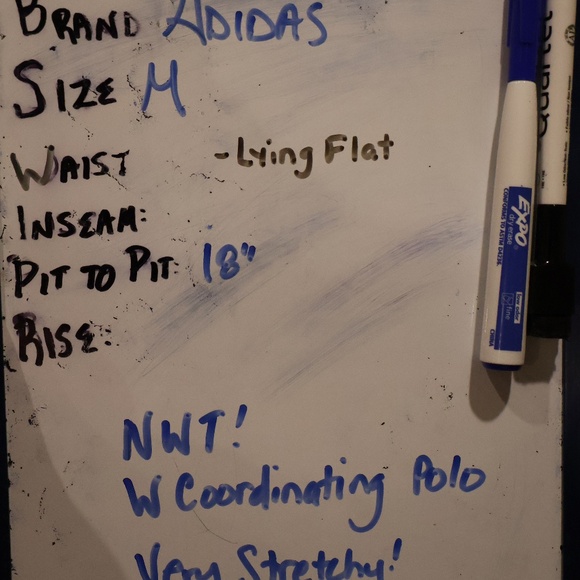 BRAND ADIDAS
SIZE M
WAIST -Lying Flat
INSEAM:
PIT TO PIT: 18"
RISE:
NWT!
W Coordinating Polo
Very Stretchy!
EXPO
dry erase
fine
Quartet